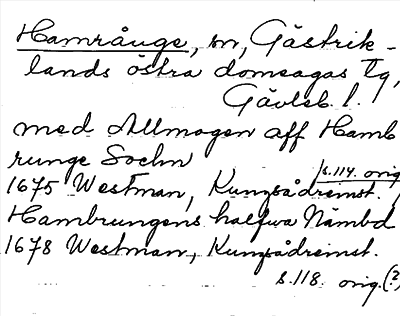 Hamrånge, sn, Gästrik-
lands östra domsagas tg,
Gävleb. l.
med Allmogen aff Hamb
runge Sochn
s.114. orig
1675 Westman, Kungsådreinst.
Hambrungens halfwa Nämbd
1678 Westman, Kungsådreinst.
s.118. orig.(?)